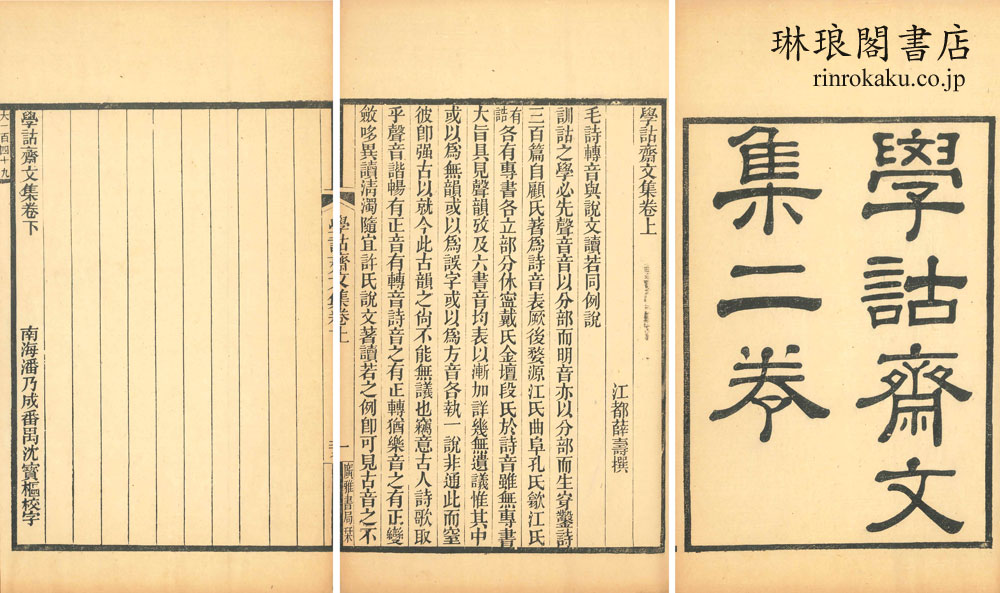 琳琅閣書店
rinrokaku.co.jp
學詁齋文
集二卷
學詁齋文集卷上
江都薛壽撰
毛詩轉音與說文讀若同例說
訓詁之學必先聲音音以分部而明音亦以分部而生穿鑿詩
三百篇自顧氏著爲詩音表厥後婺源江氏曲阜孔氏歙江氏
有誥各有專書各立部分休寧戴氏金壇段氏於詩音雖無專書
大旨具見聲韻攷及六書音均表以漸加詳幾無遺議惟其中
或以爲無韻或以爲誤字或以爲方音各執一說非通此而窒
彼卽强古以就今此古韻之尙不能無議也竊意古人詩歌取
乎聲音諧暢有正音有轉音詩音之有正轉猶樂音之有正變
斂侈異讀淸濁隨宜許氏說文著讀若之例卽可見古音之不
學詁齋文集卷上
一
廣雅書局栞
學詁齋文集卷下
南海潘乃成番禺沈寶樞校字
大一百四十九